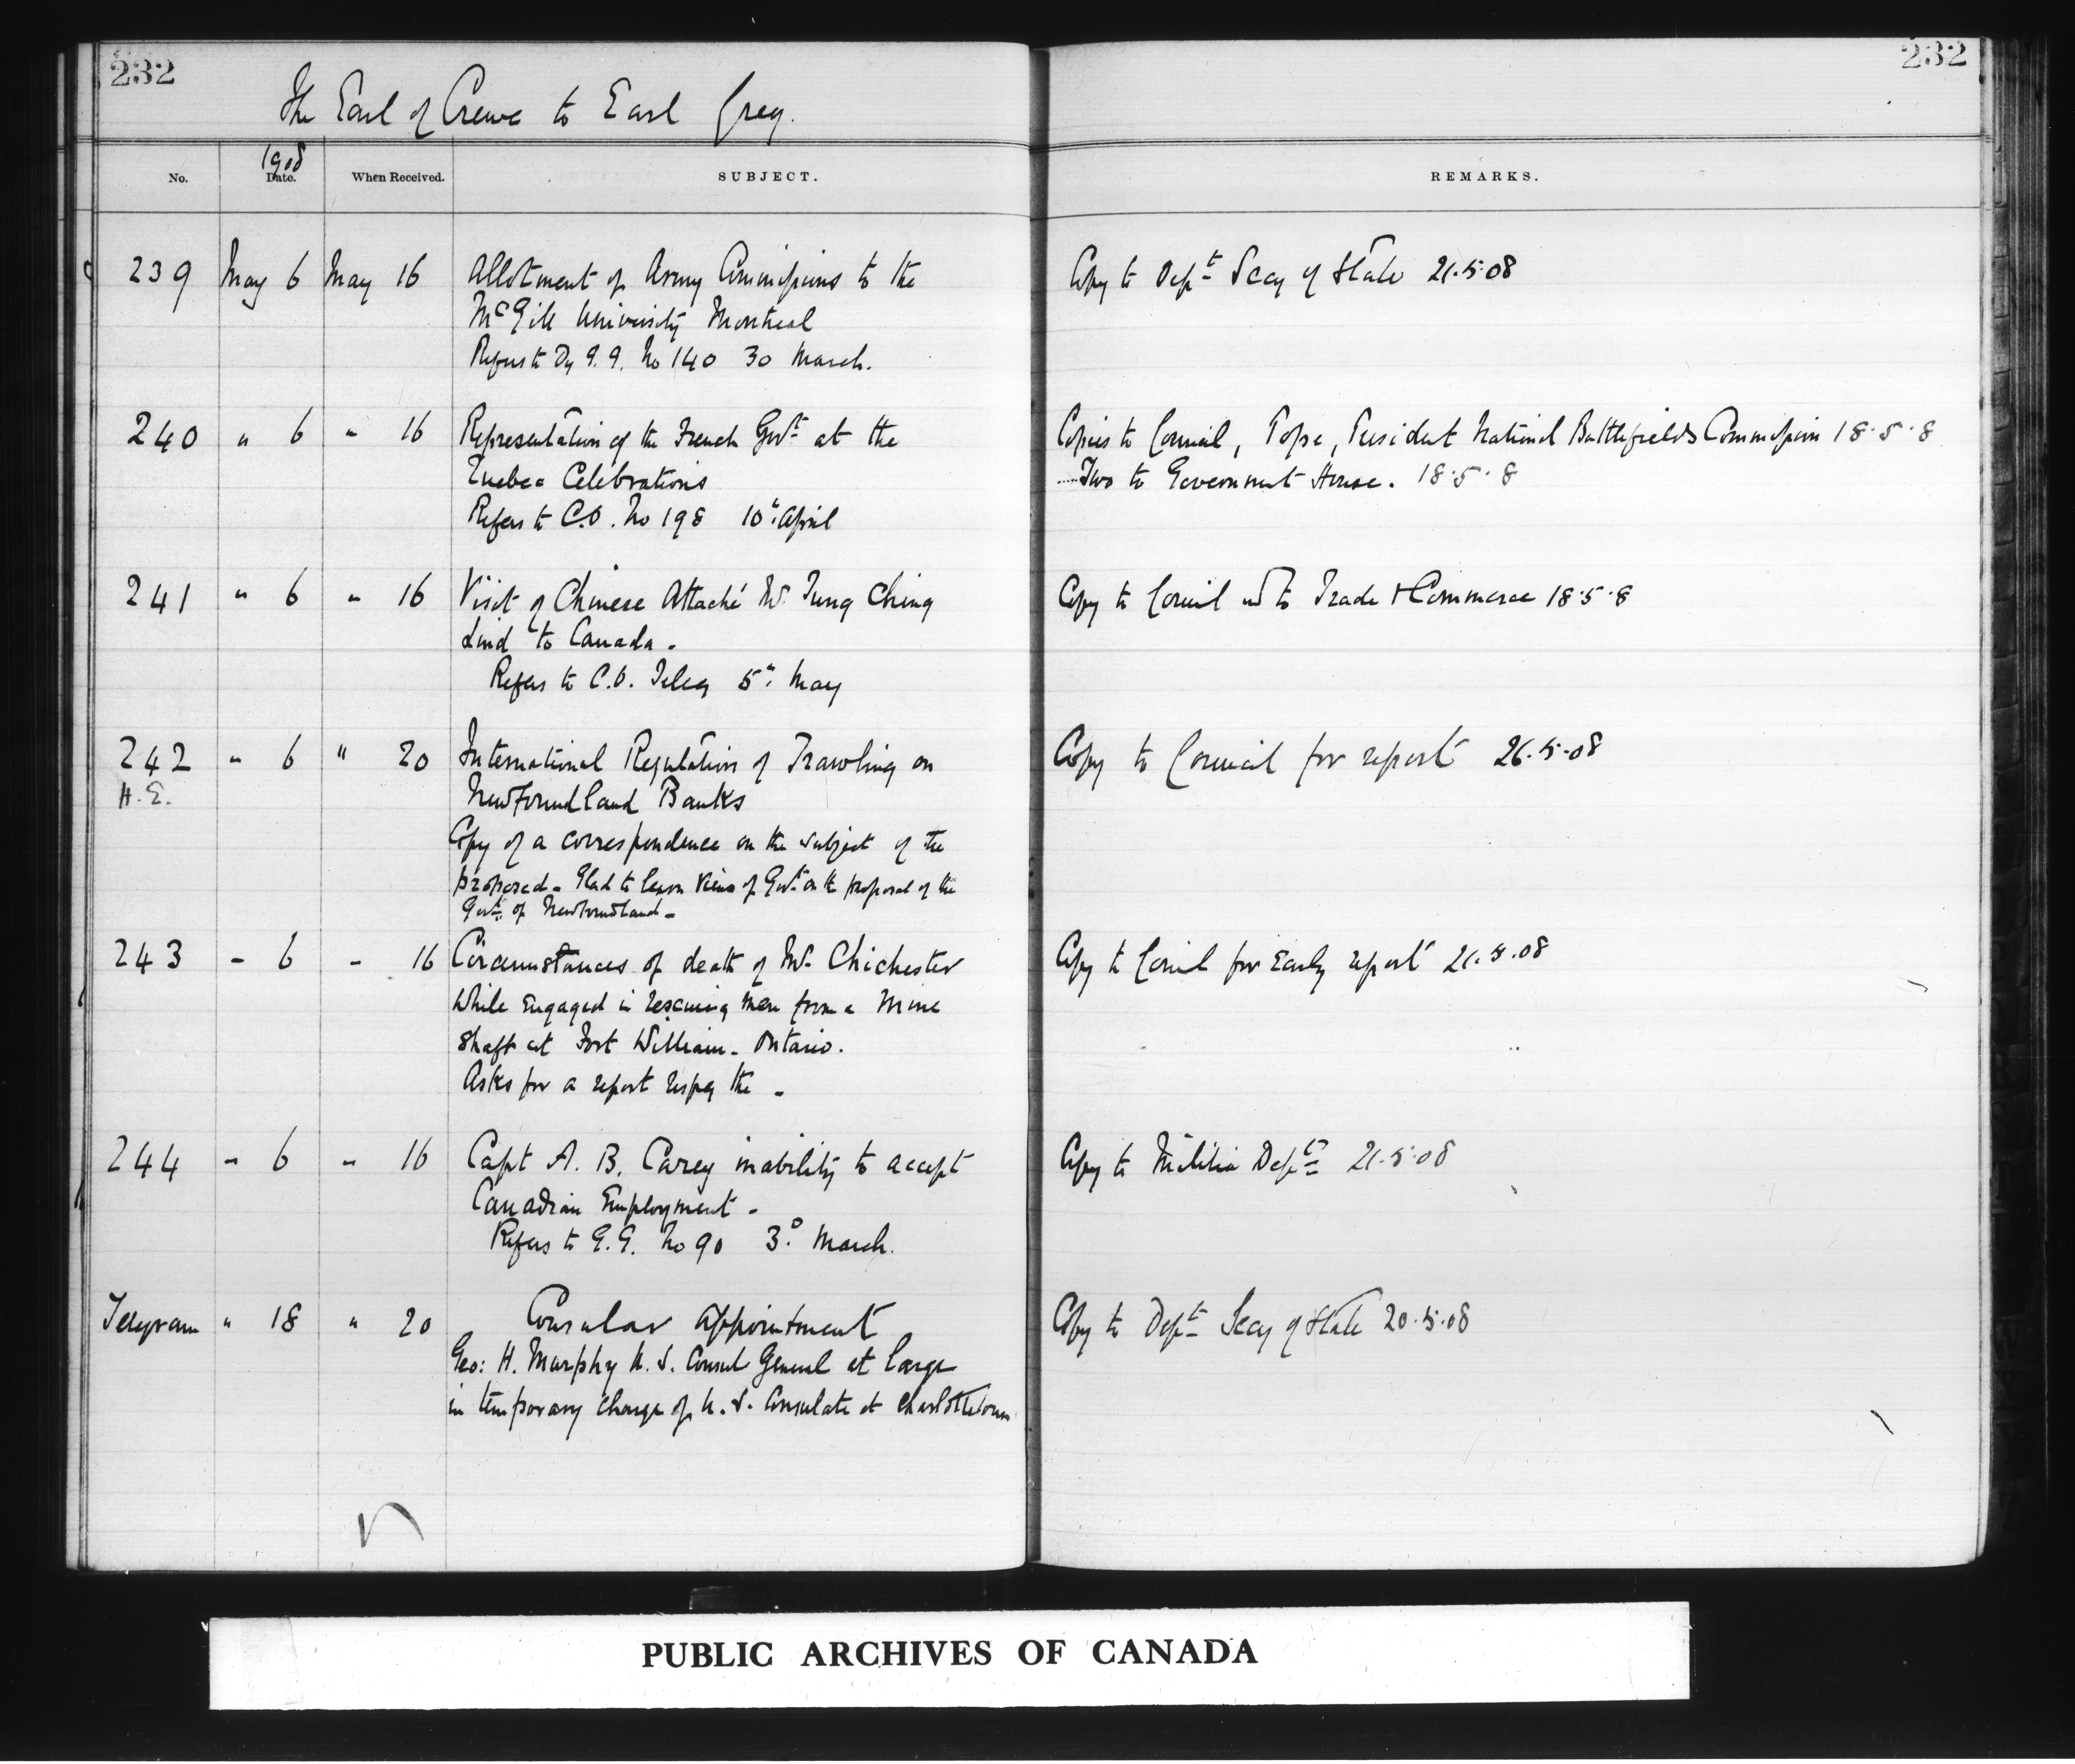 232
232
The Earl of Crewe to Earl Grey.
1908
No.
Date.
When Received.
SUBJECT.
REMARKS.
239 May 6 May 16 Allotment of Army Commissions to the
McGill University Montreal
Refers to Dy G.G. No 140 30 March.
Copy to Dept Secy of State 21.5.08
240 " 6 " 16 Representation of the French Govt at the
Quebec Celebrations
Refers to C.O. No 198 10th April
Copies to Council, Pope, President National Battlefields Commission 18.5.8
Two to Government House. 18.5.8
241 " 6 " 16 Visit of Chinese Attaché Mr. Tung Ching
to Canada.
Refers to C.O. Teleg 5th May
Copy to Council and to Trade & Commerce 18.5.8
242 " 6 " 20 International Regulation of Trawling on
H.E.
Newfoundland Banks
Copy of a correspondence on the subject of the
proposed - Glad to learn views of Govt on the proposal of the
Govt. of Newfoundland -
Copy to Council for report 26.5.08
243 " 6 " 16 Circumstances of death of Mr. Chichester
while engaged in rescuing men from a mine
shaft at Fort William - Ontario.
Asks for a report respg the -
Copy to Council for early report 21.5.08
244 " 6 " 16 Capt A. B. Carey inability to accept
Canadian Employment -
Refers to G.G. No 90 3d March.
Copy to Militia Dept 21.5.08
Telegram " 18 " 20 Consular Appointment
Geo: H. Murphy U.S. Consul General at large
in temporary charge of U.S. Consulate at Charlottetown
Copy to Dept Secy of State 20.5.08
PUBLIC ARCHIVES OF CANADA